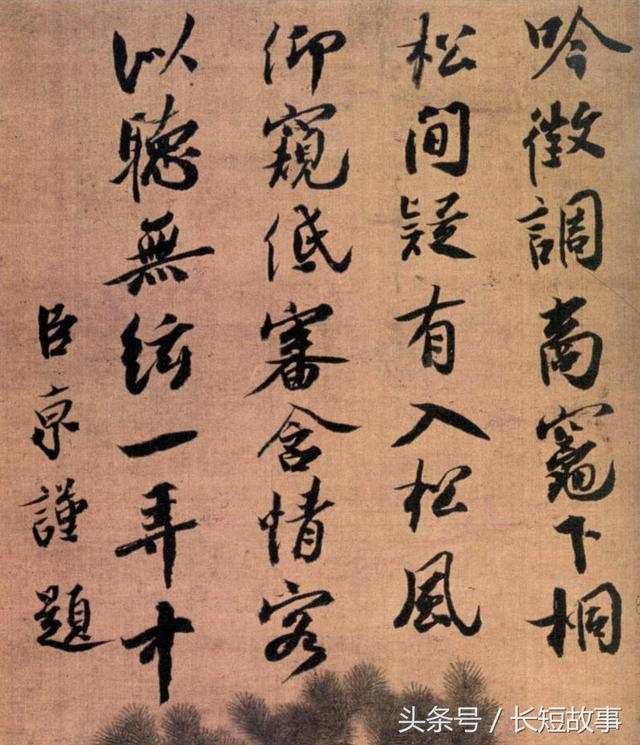 吟徵調商竈下桐
松間疑有入松風
仰窺低審含情客
似聽無絃一弄中
臣京謹題
头条号／长短故事